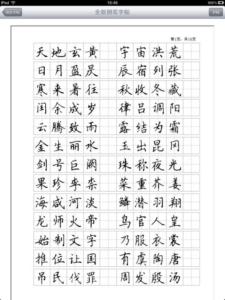 iPod
全能钢笔字帖
第1页，共10页
天地玄黄 宇宙洪荒
日月盈昃 辰宿列张
寒来暑往 秋收冬藏
闰余成岁 律吕调阳
云腾致雨 露结为霜
金生丽水 玉出昆冈
剑号巨阙 珠称夜光
果珍李柰 菜重芥姜
海咸河淡 鳞潜羽翔
龙师火帝 鸟官人皇
始制文字 乃服衣裳
推位让国 有虞陶唐
吊民伐罪 周发殷汤